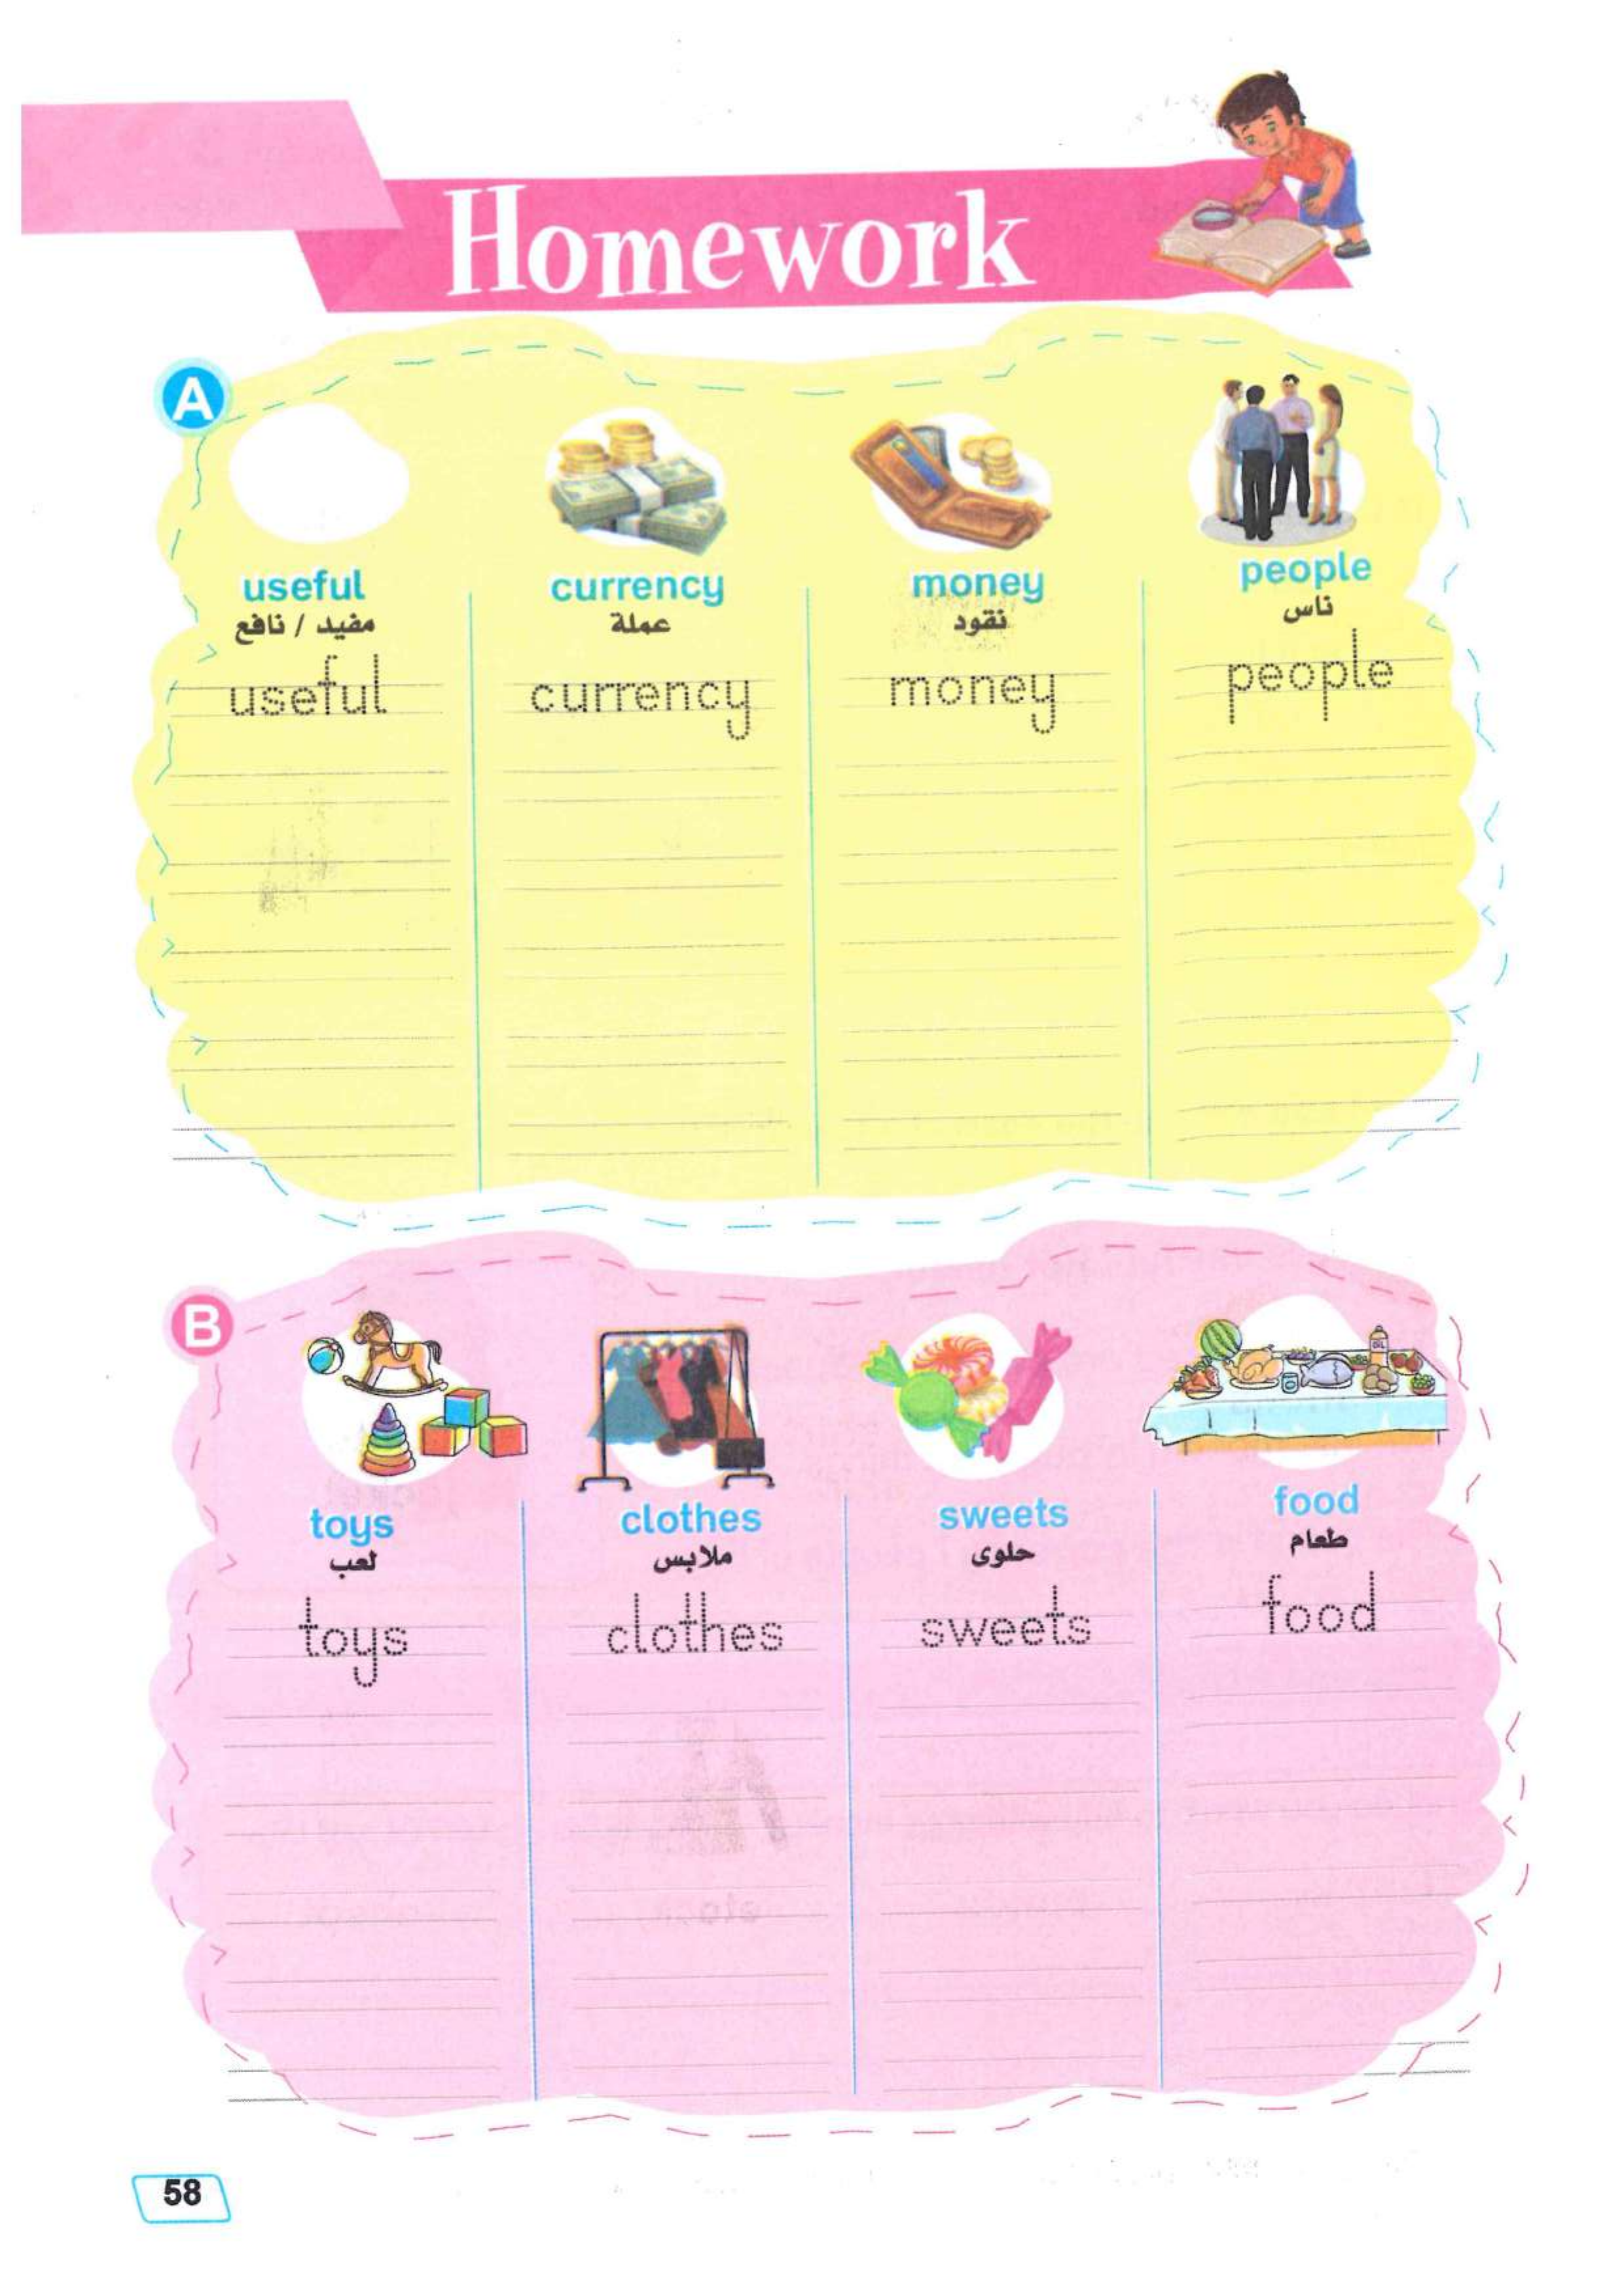 Homework
A
useful
currency
money
people
مفيد / نافع
عملة
نقود
ناس
useful
currency
money
people
B
OIL
toys
clothes
sweets
food
لعب
ملابس
حلوى
طعام
toys
clothes
sweets
food
58